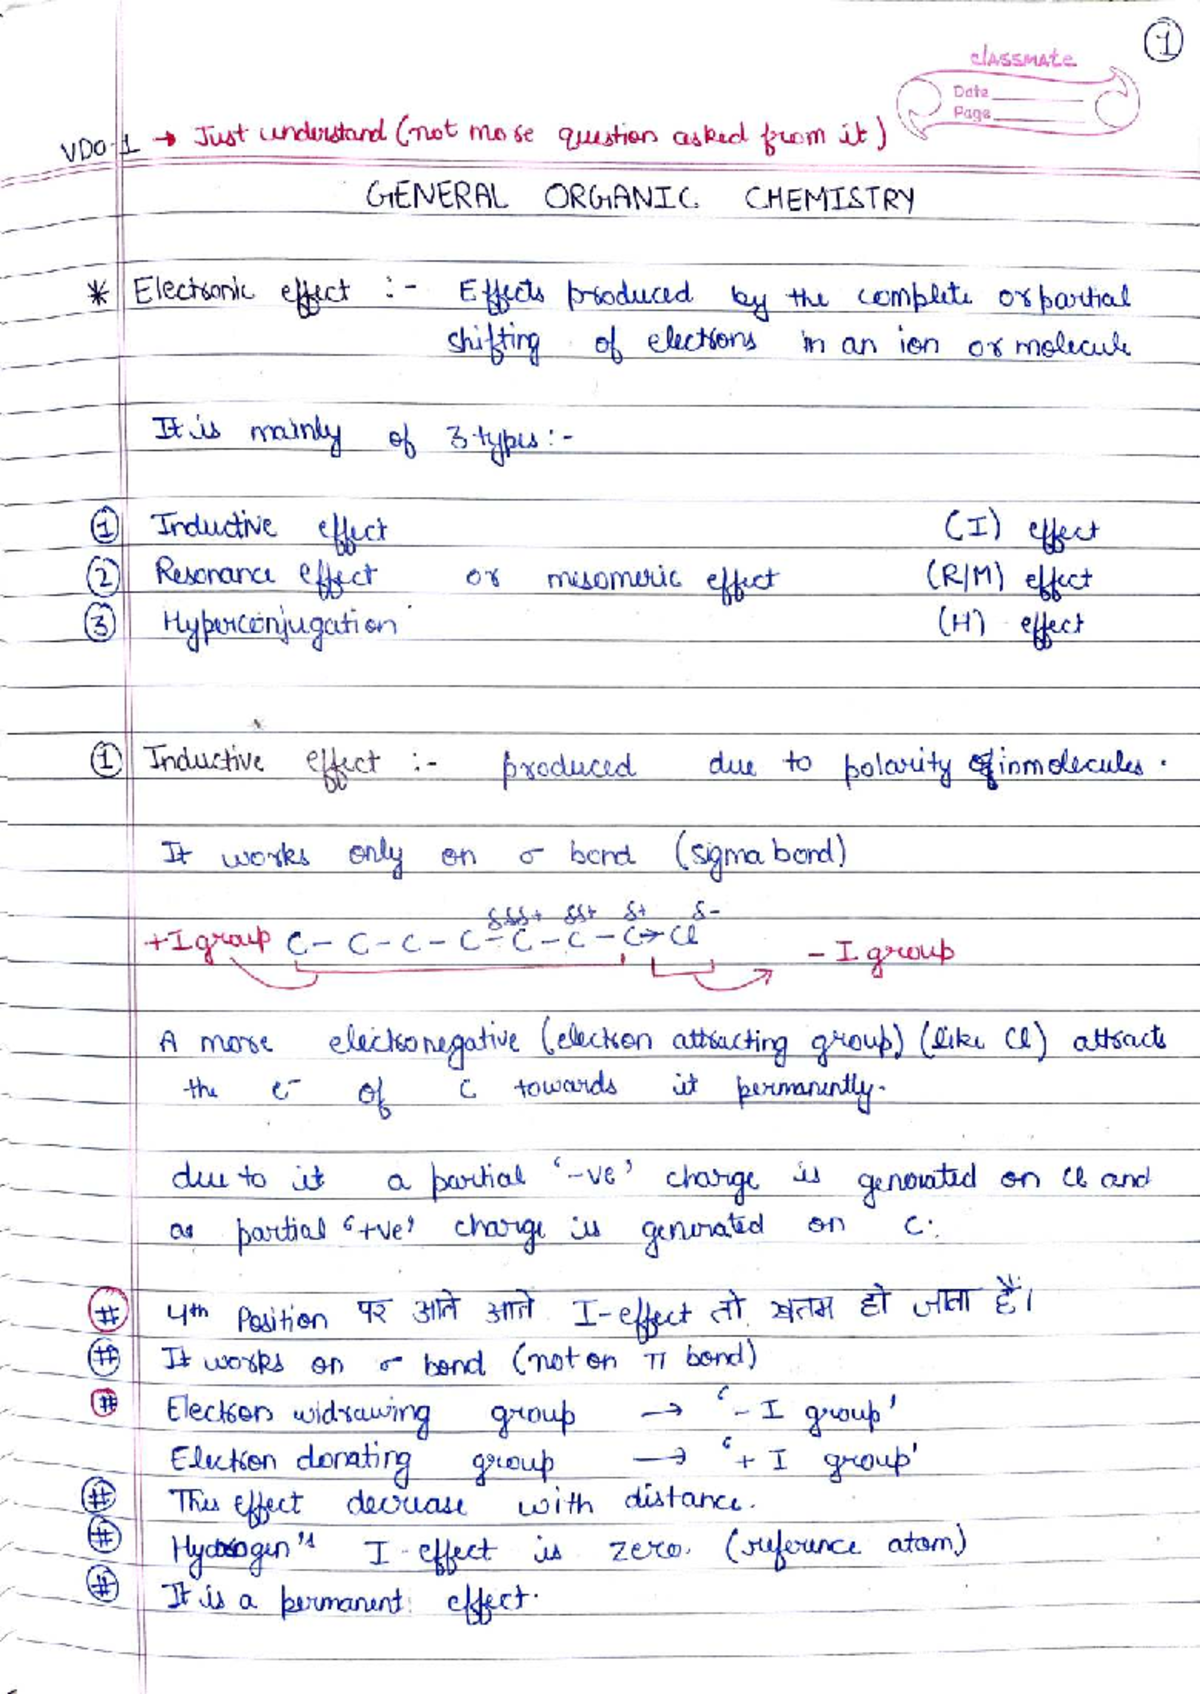 1
classmate
Date
Page
VDO-1 → Just understand (not more question asked from it)
GENERAL ORGANIC CHEMISTRY
* Electronic effect :- Effects produced by the complete or partial
shifting of electrons in an ion or molecule
It is mainly of 3 types:-
① Inductive effect (I) effect
② Resonance effect or misomeric effect (R/M) effect
③ Hyperconjugation (H) effect
① Inductive effect :- produced due to polarity in molecules.
It works only on σ bond (sigma bond)
δδδ+ δδ+ δ+ δ-
+I group C - C - C - C - C - C - C → Cl - I group
A more electronegative (electron attracting group) (like Cl) attracts
the e⁻ of C towards it permanently.
due to it a partial '-ve' charge is generated on Cl and
as partial '+ve' charge is generated on C.
# 4th Position पर आते आते I-effect तो खतम हो जाता है।
# It works on σ bond (not on π bond)
# Electron widrawing group → '- I group'
Election donating group → '+ I group'
# This effect decrease with distance.
# Hydrogen's I-effect is zero. (reference atom)
# It is a permanent effect.